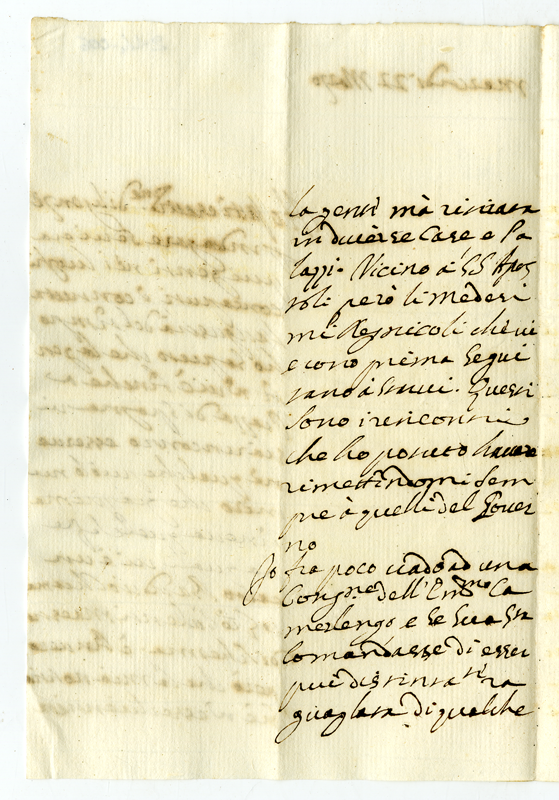 la gente mà ritirata
in diverse Case e Pa
lazzi. Vicino à SS Apos
toli però li medesi
mi Regnicoli che vi
erono prima segui
tano à starvi. Questi
sono i riscontri
che ho potuto havere
rimettendomi sem
pre à quelli del Gover
no
Io fra poco vado ad una
Congne dell'Emmo Ca
merlengo e se Sua Stà
comandasse di esser
più distintante ra
guagliata di qualche